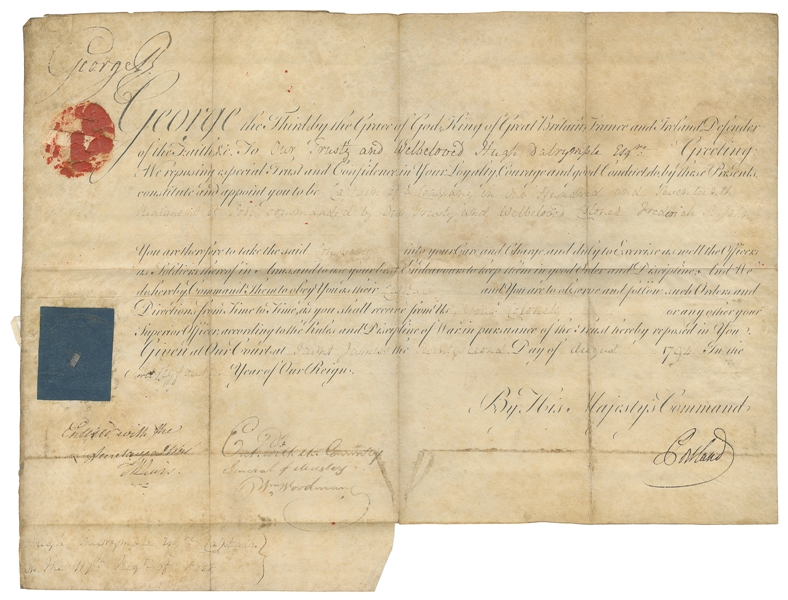 George R
George the Third by the Grace of God King of Great Britain, France and Ireland, Defender
of the Faith &c. To Our Trusty and Welbeloved Hugh Dalrymple Esqre. Greeting
We reposing especial Trust and Confidence in Your Loyalty Courage and good Conduct do by these Presents
constitute and appoint you to be Captain of a Company in Our Hundred and
Regiment of Foot commanded by Our Trusty and Welbeloved Colonel Frederick
You are therefore to take the said Company into your Care and Charge and duly to Exercise as well the Officers
as Soldiers thereof in Arms and to use your best Endeavours to keep them in good Order and Discipline, And We
do hereby Command Them to obey You as their Captain and You are to observe and follow such Orders and
Directions from Time to Time, as you shall receive from Us your Colonel or any other your
Superior Officer, according to the Rules and Discipline of War in pursuance of the Trust hereby reposed in You
Given at Our Court at Saint James's the Day of August 1794 In the
Year of Our Reign.
By His Majesty's Command
Portland
Enter'd with the
Entd. with the Commissary
General of Musters
Wm Woodman
Hugh Dalrymple Esqre Captain
in the Regt of Foot